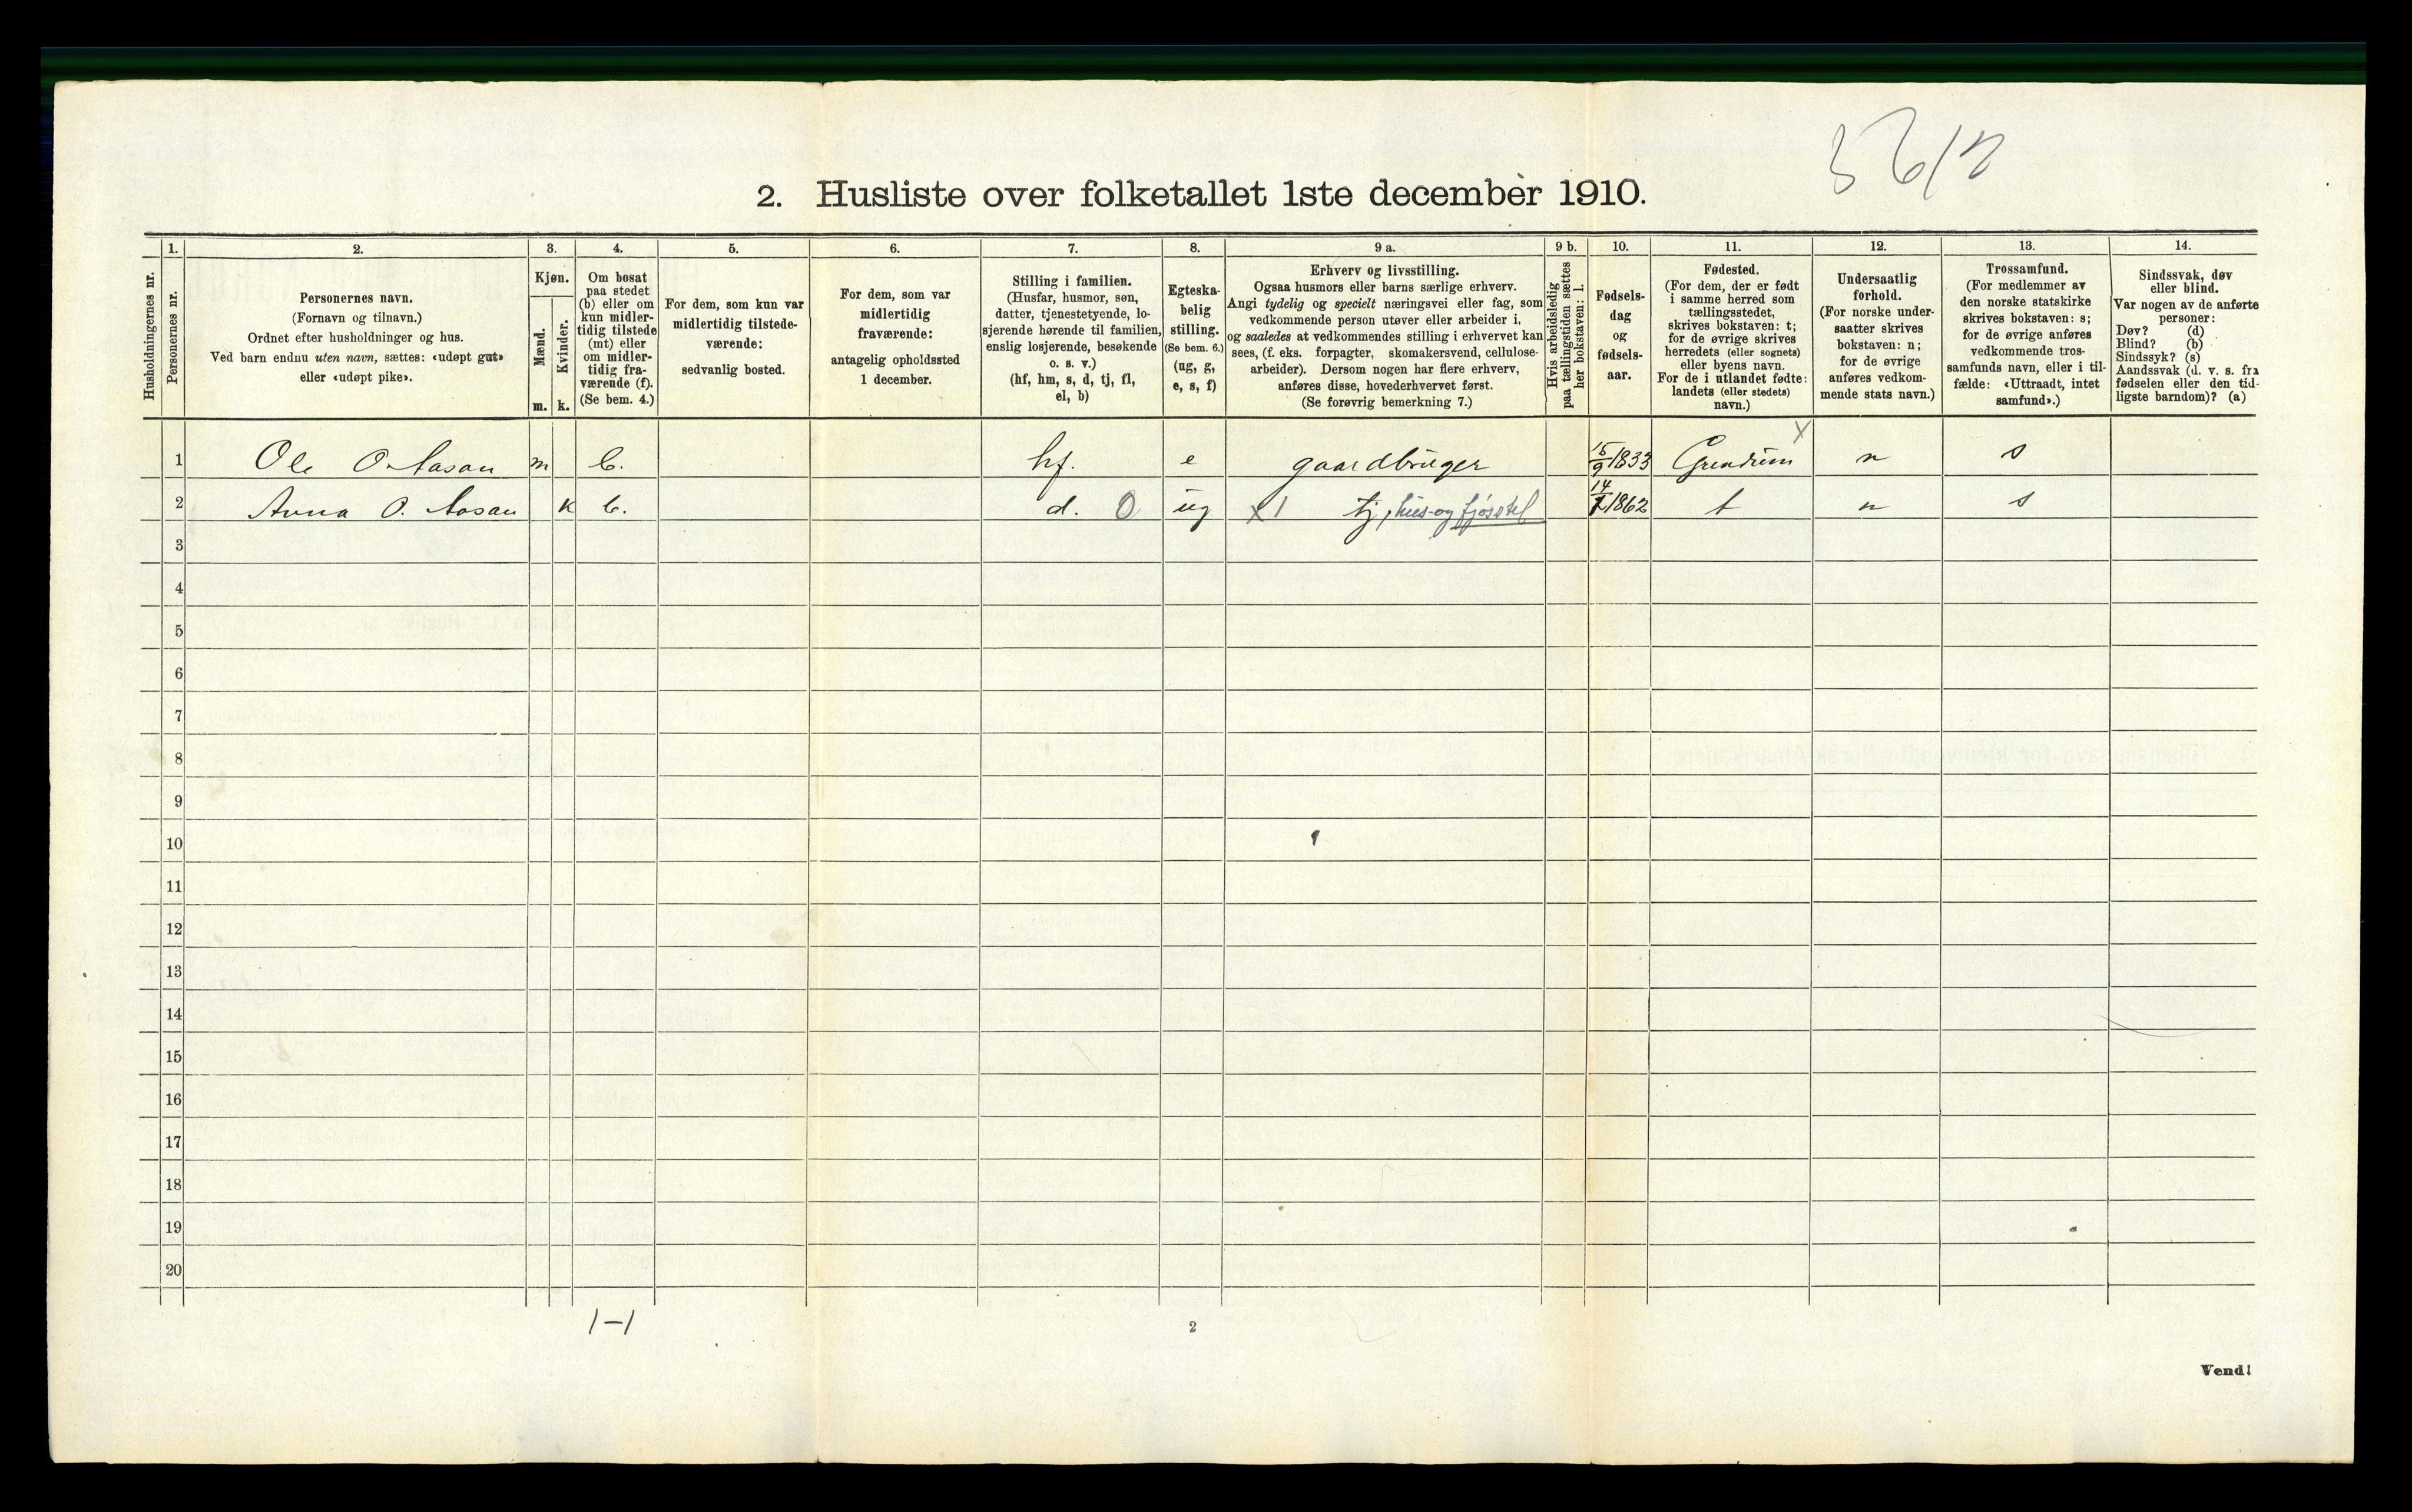 2. Husliste over folketallet 1ste december 1910.
Husholdningernes nr.
1.
Personernes nr.
2.
Personernes navn.
(Fornavn og tilnavn.)
Ordnet efter husholdninger og hus.
Ved barn endnu uten navn, sættes: «udøpt gut»
eller «udøpt pike».
3.
Kjøn.
Mænd.
m.
Kvinder.
k.
4.
Om bosat
paa stedet
(b) eller om
kun midler-
tidig tilstede
(mt) eller
om midler-
tidig fra-
værende (f).
(Se bem. 4.)
5.
For dem, som kun var
midlertidig tilstede-
værende:
sedvanlig bosted.
6.
For dem, som var
midlertidig
fraværende:
antagelig opholdssted
1 december.
7.
Stilling i familien.
(Husfar, husmor, søn,
datter, tjenestetyende, lo-
sjerende hørende til familien,
enslig losjerende, besøkende
o. s. v.)
(hf, hm, s, d, tj, fl,
el, b)
8.
Egteska-
belig
stilling.
(Se bem. 6.)
(ug, g,
e, s, f)
9 a.
Erhverv og livsstilling.
Ogsaa husmors eller barns særlige erhverv.
Angi tydelig og specielt næringsvei eller fag, som
vedkommende person utøver eller arbeider i,
og saaledes at vedkommendes stilling i erhvervet kan
sees, (f. eks. forpagter, skomakersvend, cellulose-
arbeider). Dersom nogen har flere erhverv,
anføres disse, hovederhvervet først.
(Se forøvrig bemerkning 7.)
9 b.
Hvis arbeidsledig
paa tællingstiden sættes
her bokstaven: l.
10.
Fødsels-
dag
og
fødsels-
aar.
11.
Fødested.
(For dem, der er født
i samme herred som
tællingsstedet,
skrives bokstaven: t;
for de øvrige skrives
herredets (eller sognets)
eller byens navn.
For de i utlandet fødte:
landets (eller stedets)
navn.)
12.
Undersaatlig
forhold.
(For norske under-
saatter skrives
bokstaven: n;
for de øvrige
anføres vedkom-
mende stats navn.)
13.
Trossamfund.
(For medlemmer av
den norske statskirke
skrives bokstaven: s;
for de øvrige anføres
vedkommende tros-
samfunds navn, eller i til-
fælde: «Uttraadt, intet
samfund».)
14.
Sindssvak, døv
eller blind.
Var nogen av de anførte
personer:
Døv? (d)
Blind? (b)
Sindssyk? (s)
Aandssvak (d. v. s. fra
fødselen eller den tid-
ligste barndom)? (a)
1 Ole O. Aasan m b. hf. e gaardbruger 15/9 1833 x n s
2 Anna O. Aasan k b. d. 0 ug x1 tj, hus- og fjøsstel 14/ 1862 t n s
3
4
5
6
7
8
9
10
11
12
13
14
15
16
17
18
19
20
1-1
2
Vend!